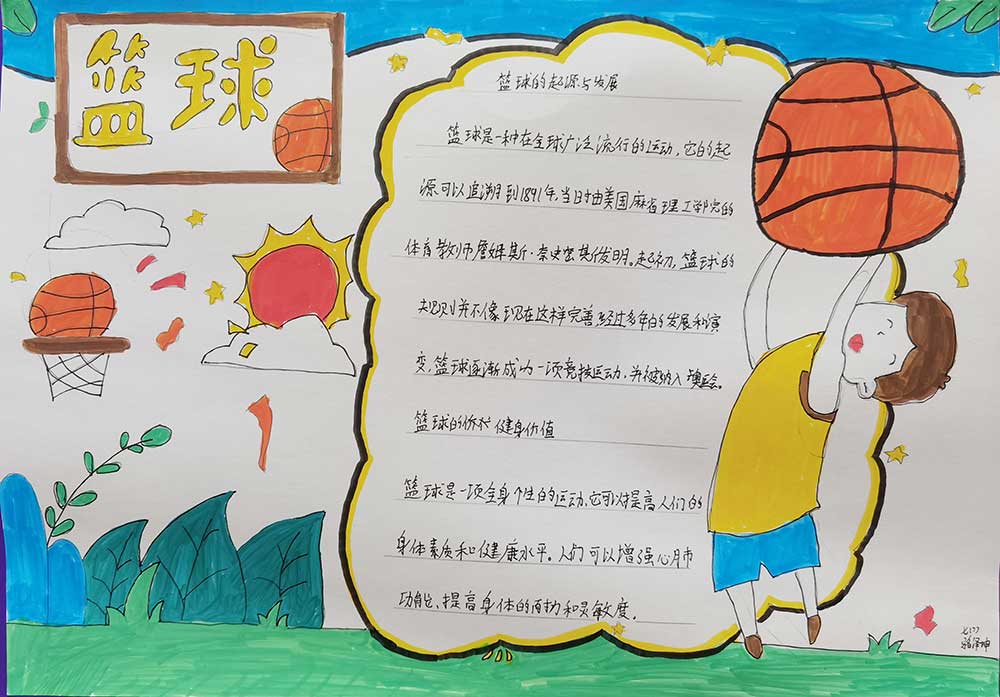 篮球
篮球的起源与发展
篮球是一种在全球广泛流行的运动，它的起
源可以追溯到1891年，当时由美国麻省理工学院的
体育教师詹姆斯·奈史密斯发明。起初，篮球的
规则并不像现在这样完善经过多年的发展和演
变，篮球逐渐成为一项竞技运动，并被纳入奥运会。
篮球的价值 健身价值
篮球是一项全身性的运动，它可以提高人们的
身体素质和健康水平。人们可以增强心肺
功能、提高身体的耐力和灵敏度。
骆泽坤